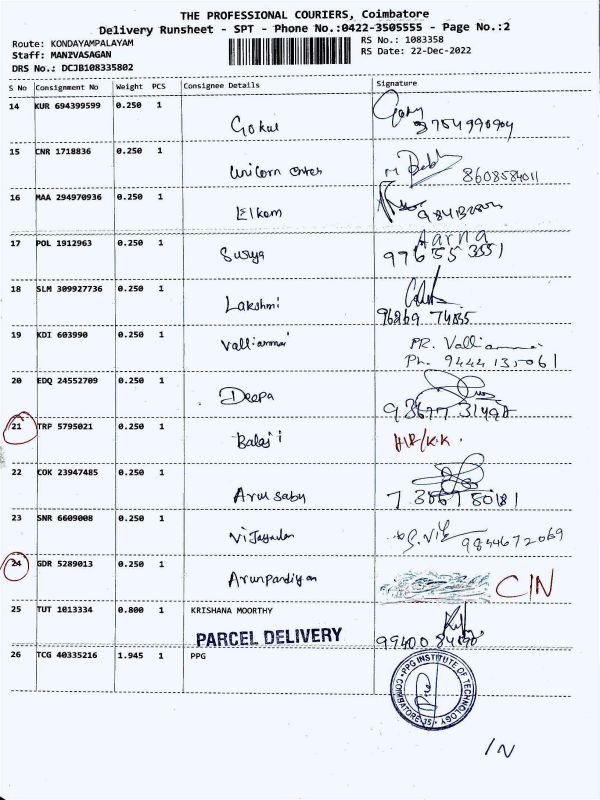 THE PROFESSIONAL COURIERS, Coimbatore
Delivery Runsheet - SPT - Phone No.:0422-3505555 - Page No.:2
Route: KONDAYAMPALAYAM RS No.: 1083358
Staff: MANIVASAGAN RS Date: 22-Dec-2022
DRS No.: DCJB108335802
S No Consignment No Weight PCS Consignee Details Signature
14 KUR 694399599 0.250 1 Gokul
15 CNR 1718836 0.250 1 Unicorn 8608584011
16 MAA 294970936 0.250 1 Elkem
17 POL 1912963 0.250 1 Surya Aarna
97655 3551
18 SLM 309927736 0.250 1 Lakshmi
19 KDI 603990 0.250 1 Valliammai PR. Valliammai
Ph. 9444135061
20 EDQ 24552709 0.250 1 Deepa
21 TRP 5795021 0.250 1 Balaji
22 COK 23947485 0.250 1 Arul babu
23 SNR 6609008 0.250 1 9854672069
24 GDR 5289013 0.250 1 Arunpandiyan C/N
25 TUT 1013334 0.800 1 KRISHANA MOORTHY
PARCEL DELIVERY
26 TCG 40335216 1.945 1 PPG
PPG INSTITUTE OF TECHNOLOGY
COIMBATORE 35